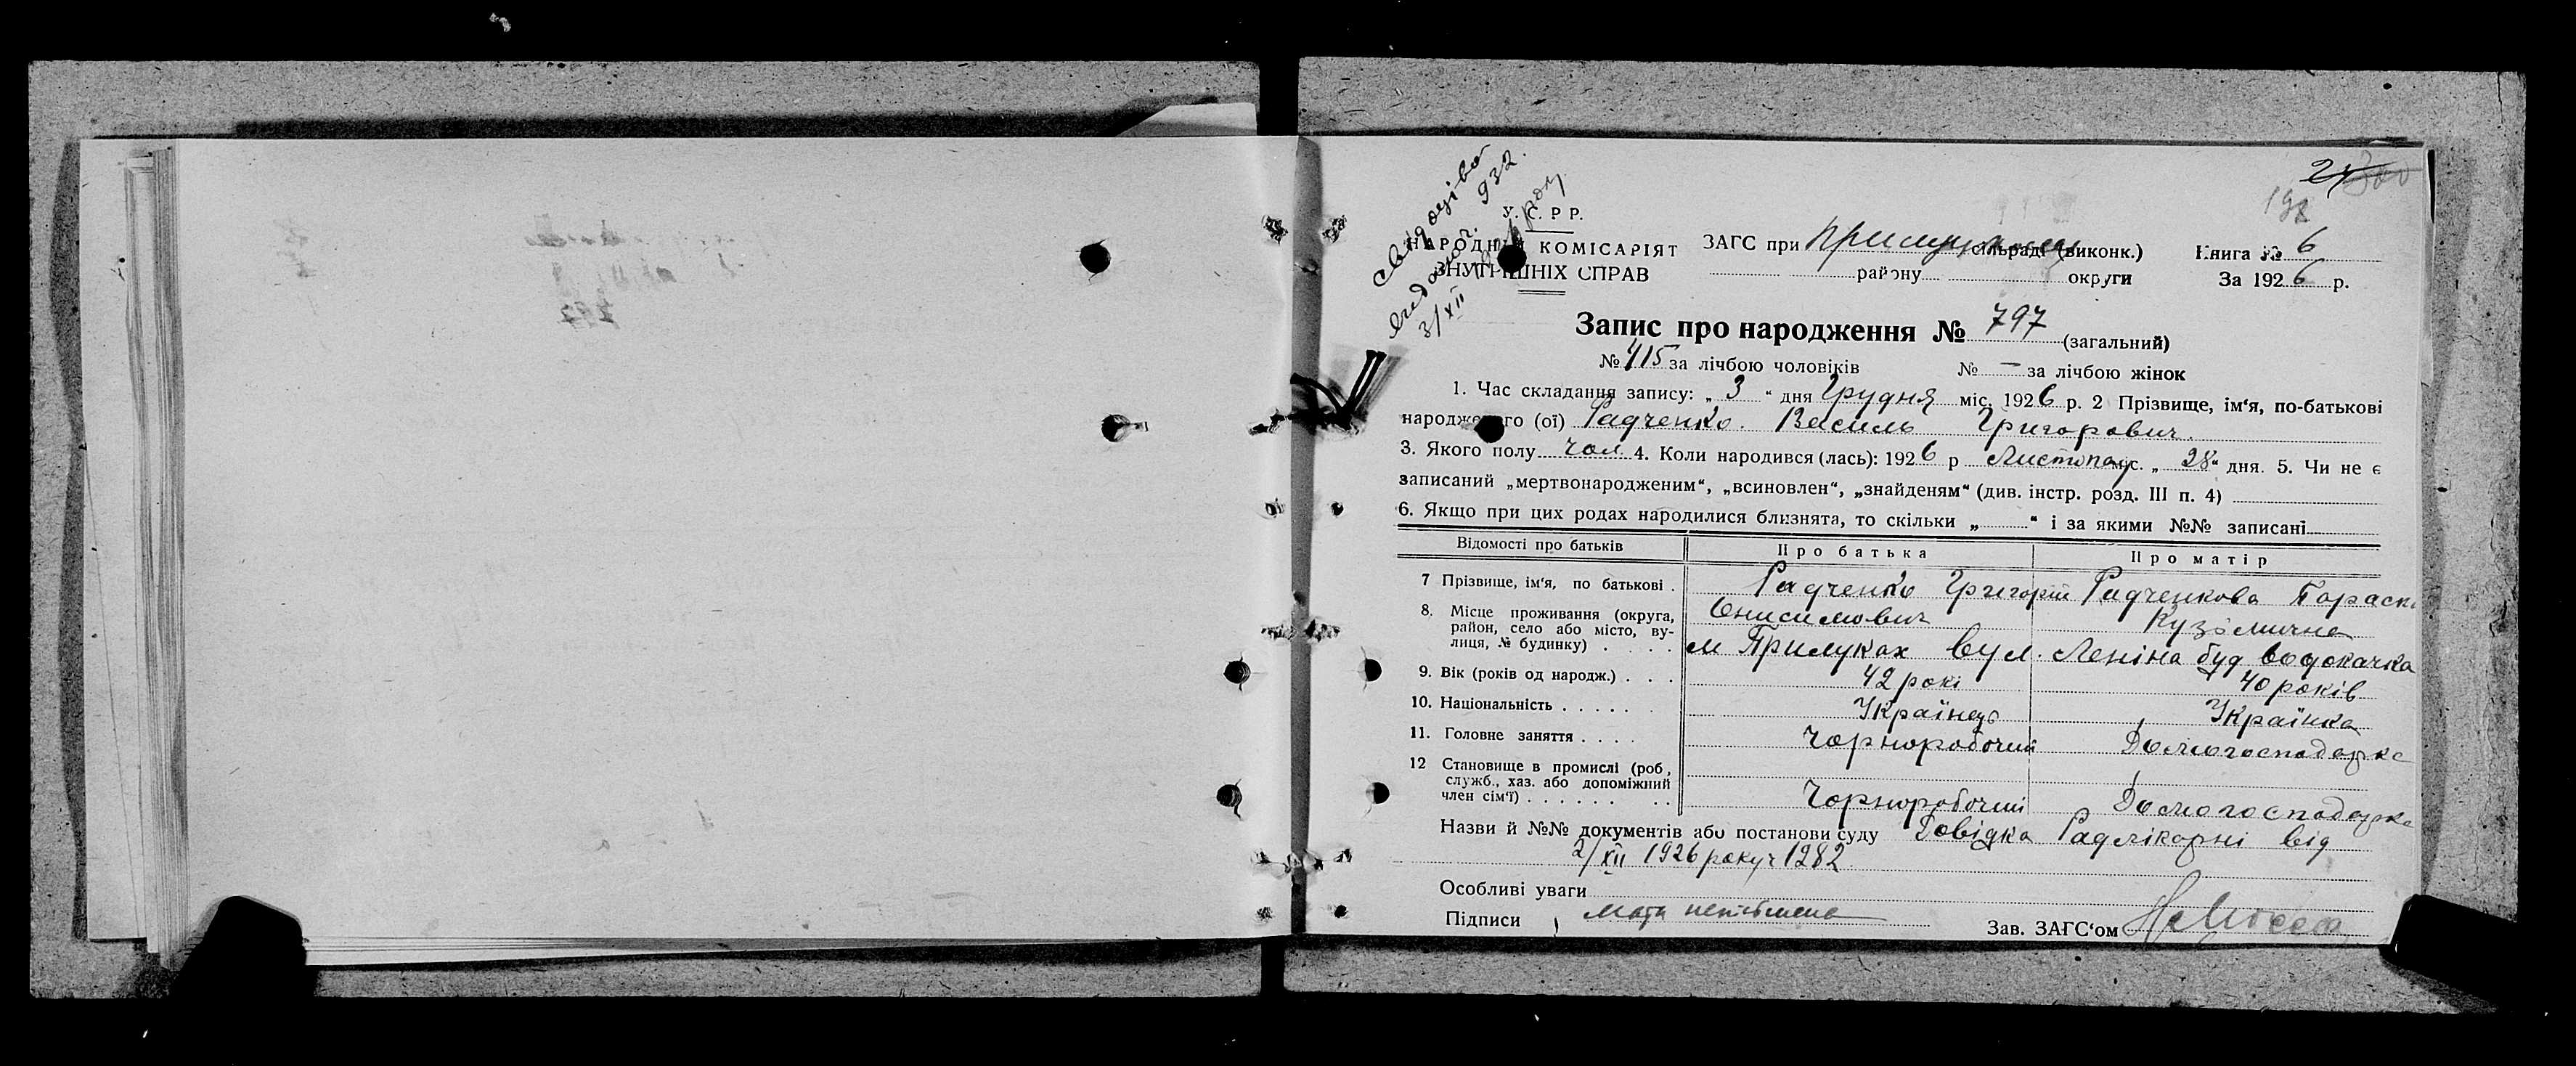 свідоцтво
видано ч. 932.
3/XII 1926 року
24
300
192
У. С. Р Р.
НАРОДНІЙ КОМІСАРІЯТ
ВНУТРІШНІХ СПРАВ
ЗАГС при сільраді (виконк.)
району округи
Книга № 6
За 1926 р.
Запис про народження № 797 (загальний)
№ 415 за лічбою чоловіків № — за лічбою жінок
1. Час складання запису: „ 3 “ дня Грудня міс. 1926 р. 2 Прізвище, ім‘я, по-батькові
народженого (ої) Радченко. Василь Григорович.
3. Якого полу чол. 4. Коли народився (лась): 1926 р Листопад міс. „ 28 “ дня. 5. Чи не є
записаний „мертвонародженим“, „всиновлен“, „знайденям“ (див. інстр. розд. III п. 4)
6. Якщо при цих родах народилися близнята, то скільки „ “ і за якими №№ записані
Відомості про батьків Про батька Про матір
7 Прізвище, ім‘я, по батькові . Радченко Григорій Онисимович Радченкова Параск Кузьмична
8. Місце проживання (округа,
район, село або місто, ву-
лиця, № будинку) . . . . м Прилуках вул. Леніна буд водокачка
9. Вік (років од народж.) . . . 42 рокі 40 років
10. Національність . . . . . Українець Українка
11. Головне заняття . . . . Чорноробочий Домогосподарка
12 Становище в промислі (роб.,
служб., хаз. або допоміжний
член сім‘ї) . . . . . . . . Чорноробочий Домогосподарка
Назви й №№ документів або постанови суду Довідка Радлікарні від
2/XII 1926 року ч 1282
Особливі уваги
Підписи Мати неписьмена Зав. ЗАГС‘ом